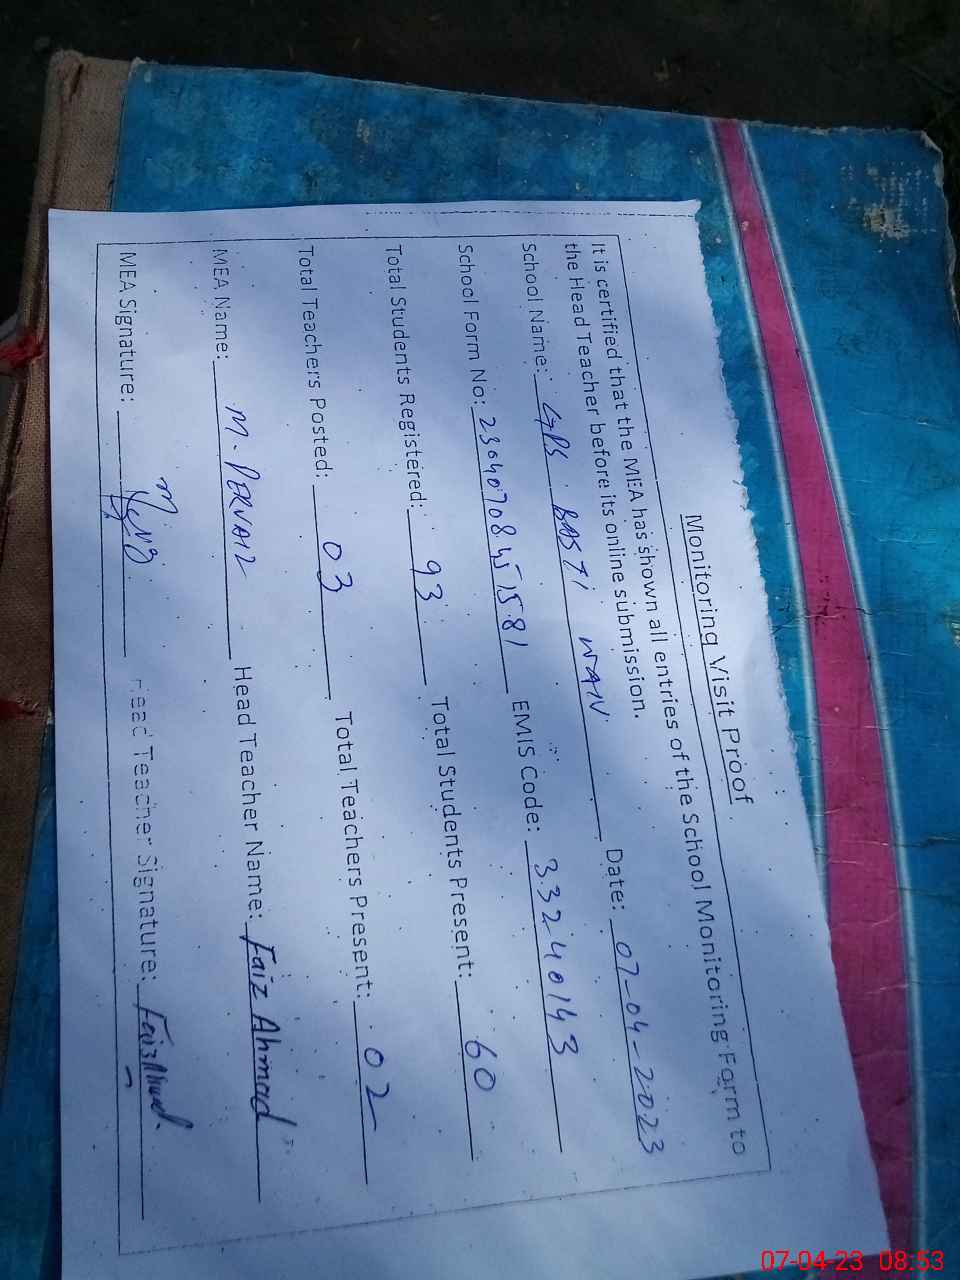 Monitoring Visit Proof
It is certified that the MEA has shown all entries of the School Monitoring Form to
the Head Teacher before its online submission.
School Name: GPS BASTI WAIN Date: 07-04-2023
School Form No: 2304070845 1581 EMIS Code: 33240143
Total Students Registered: 93 Total Students Present: 60
Total Teachers Posted: 03 Total Teachers Present: 02
MEA Name: M. PERVAIZ Head Teacher Name: Faiz Ahmad
MEA Signature: Head Teacher Signature: Faiz Ahmad
07-04-23 08:53